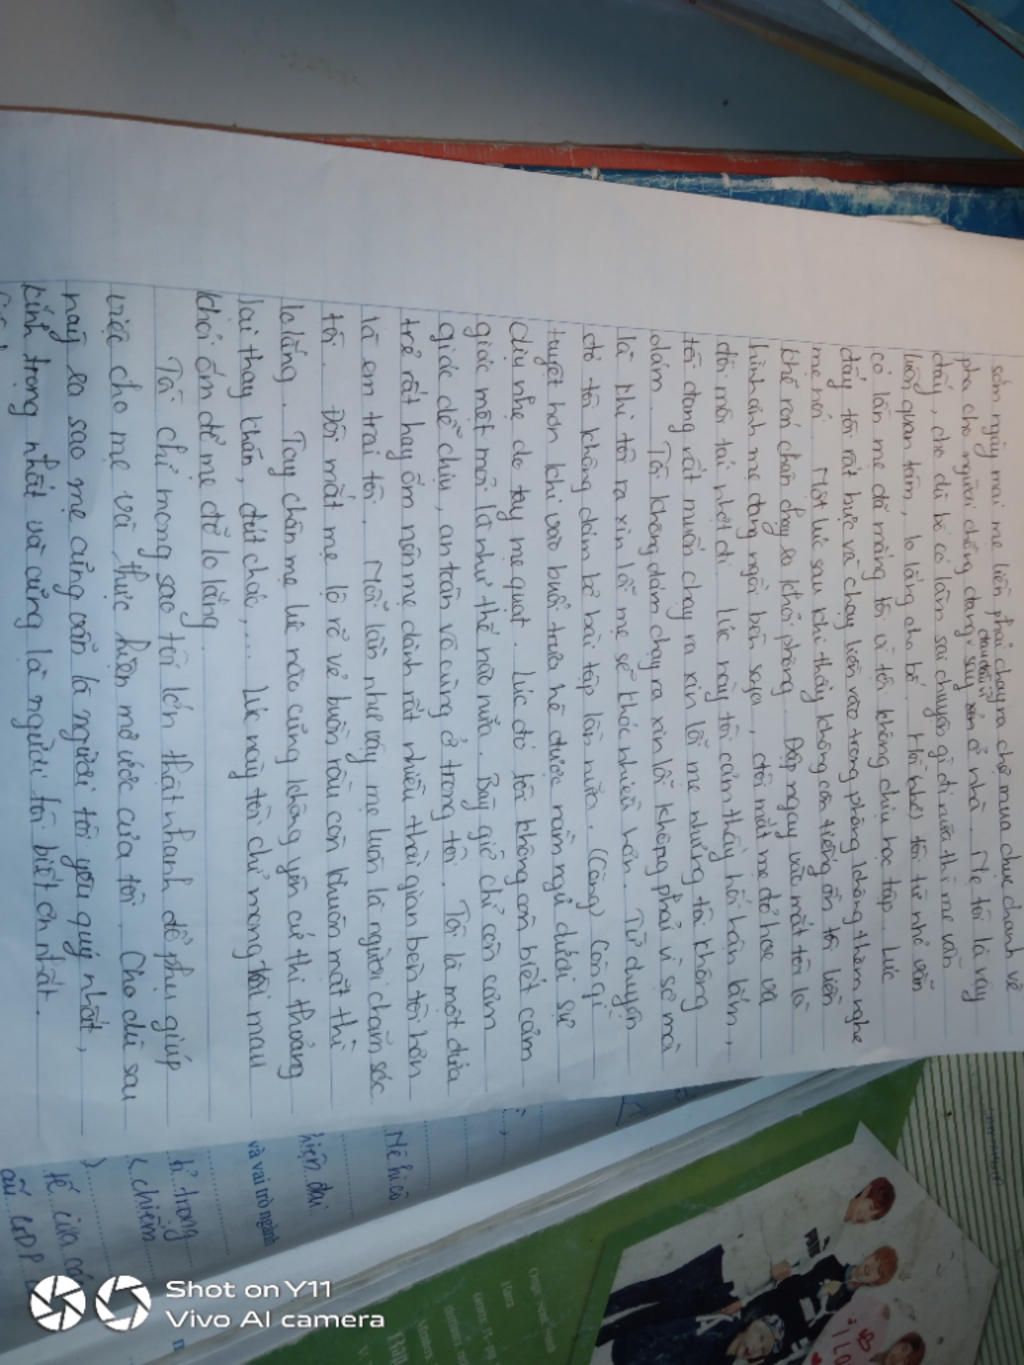 sớm ngày mai mẹ liền phải chạy ra chợ mua chục chanh về
pha cho người chồng đang say xỉn ở nhà. Mẹ tôi là vậy
đấy, cho dù bố có lầm sai chuyện gì đi nữa thì mẹ vẫn
luôn quan tâm, lo lắng cho bố. Hồi nhỏ, tôi từ nhỏ vẫn
có lần mẹ đã mắng tôi vì tôi không chịu học tập. Lúc
đấy tôi rất bực và chạy liền vào trong phòng không thèm nghe
mẹ nói. Một lúc sau khi thấy không còn tiếng ồn tôi liền
khẽ rón chân chạy ra khỏi phòng. Đập ngay vào mắt tôi là
hình ảnh mẹ đang ngồi bên sofa, đôi mắt mẹ đỏ hoe và
đôi môi tái nhợt đi. Lúc này tôi cảm thấy hối hận lắm,
tôi đang rất muốn chạy ra xin lỗi mẹ nhưng tôi không
dám. Tôi không dám chạy ra xin lỗi không phải vì sợ mà
là khi tôi ra xin lỗi mẹ sẽ khóc nhiều hơn. Từ duyên
đó tôi không dám bỏ bài tập lần nữa. (Càng) Còn gì
tuyệt hơn khi vào buổi trưa hè được nằm ngủ dưới sự
dịu nhẹ do tay mẹ quạt. Lúc đó tôi không còn biết cảm
giác mệt mỏi là như thế nào nữa. Bây giờ chỉ còn cảm
giác dễ chịu, an toàn vô cùng ở trong tôi. Tôi là một đứa
trẻ rất hay ốm nên mẹ dành rất nhiều thời gian bên tôi hơn
là em trai tôi. Mỗi lần như vậy mẹ luôn là người chăm sóc
tôi. Đôi mắt mẹ lộ rõ vẻ buồn rầu còn khuôn mặt thì
lo lắng. Tay chân mẹ lúc nào cũng không yên cứ thi thoảng
lại thay khăn, đút cháo,... Lúc này tôi chỉ mong tôi mau
khỏi ốm để mẹ đỡ lo lắng.
Tôi chỉ mong sao tôi lớn thật nhanh để phụ giúp
việc cho mẹ và thực hiện mơ ước của tôi. Cho dù sau
này ra sao mẹ cũng vẫn là người tôi yêu quý nhất,
kính trọng nhất và cũng là người tôi biết ơn nhất.
Mê hi cô
hiện đại
và vai trò ngành
tỉ trọng
chiếm
tế của
GDP
Shot on Y11
Vivo AI camera